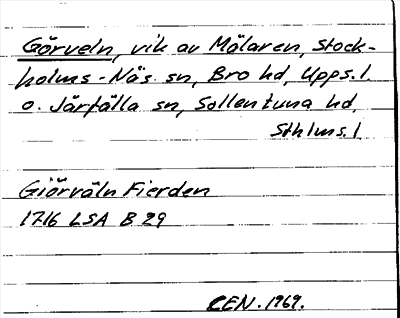 Görveln, vik av Mälaren, Stock-
holms-Näs sn, Bro hd, Upps.l.
o. Järfälla sn, Sollentuna hd,
Sthlms.l
Giörväln Fierden
1716 LSA B 29
CEN. 1969.